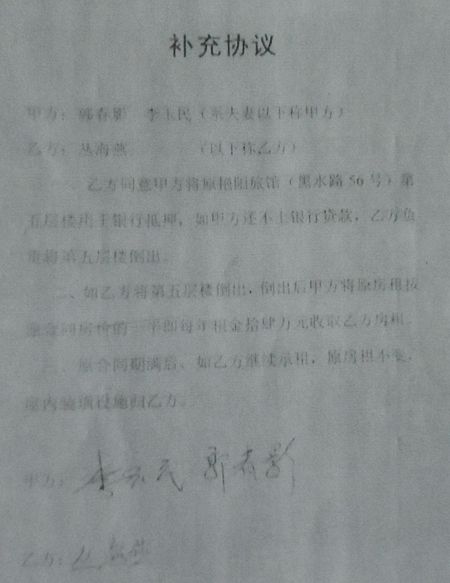 补充协议
甲方：郭春影 李玉民（系夫妻以下称甲方）
乙方：丛海燕 （以下称乙方）
乙方同意甲方将原艳阳旅馆（黑水路56号）第
五层楼用于银行抵押，如甲方还不上银行贷款，乙方负
责将第五层楼倒出。
二、如乙方将第五层楼倒出，倒出后甲方将原房租按
原合同房价的一半即每年租金拾肆万元收取乙方房租。
原合同期满后、如乙方继续承租，原房租不变，
屋内装璜设施归乙方。
甲方：李玉民 郭春影
乙方：丛海燕